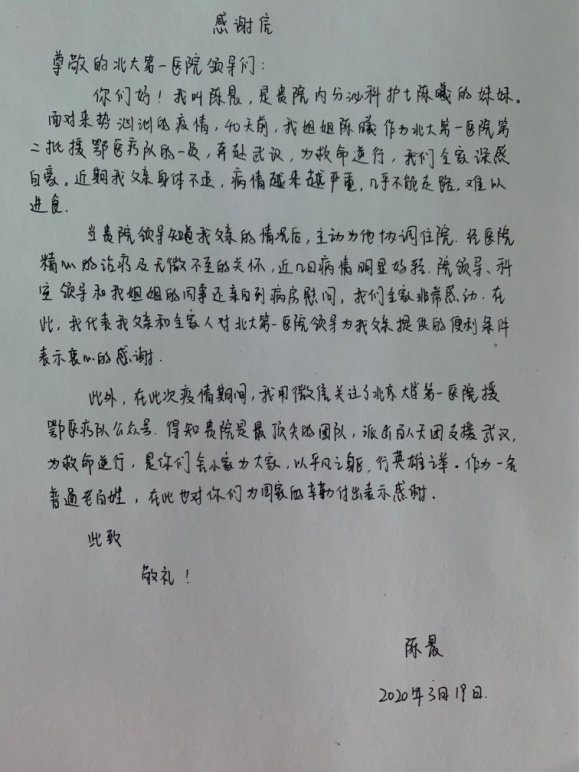 感谢信
尊敬的北大第一医院领导们：
你们好！我叫陈晨，是贵院内分泌科护士陈曦的妹妹。
面对来势汹汹的疫情，40天前，我姐姐陈曦作为北大第一医院第
二批援鄂医疗队的一员，奔赴武汉，为救命逆行，我们全家深感
自豪。近期我父亲身体不适，病情越来越严重，几乎不能走路，难以
进食.
当贵院领导知道我父亲的情况后，主动为他协调住院. 经医院
精心的治疗及无微不至的关怀，近几日病情明显好转. 院领导、科
室领导和我姐姐的同事还亲自到病房慰问，我们全家非常感动. 在
此，我代表我父亲和全家人对北大第一医院领导为我父亲提供的便利条件
表示衷心的感谢.
此外，在此次疫情期间，我用微信关注了北京大学第一医院援
鄂医疗队公众号. 得知贵院是最顶尖的团队，派出百人天团支援武汉，
为救命逆行，是你们舍小家为大家，以平凡之躯，行英雄之举。作为一名
普通老百姓，在此也对你们为国家的辛勤付出表示感谢.
此致
敬礼！
陈晨
2020年3月19日.